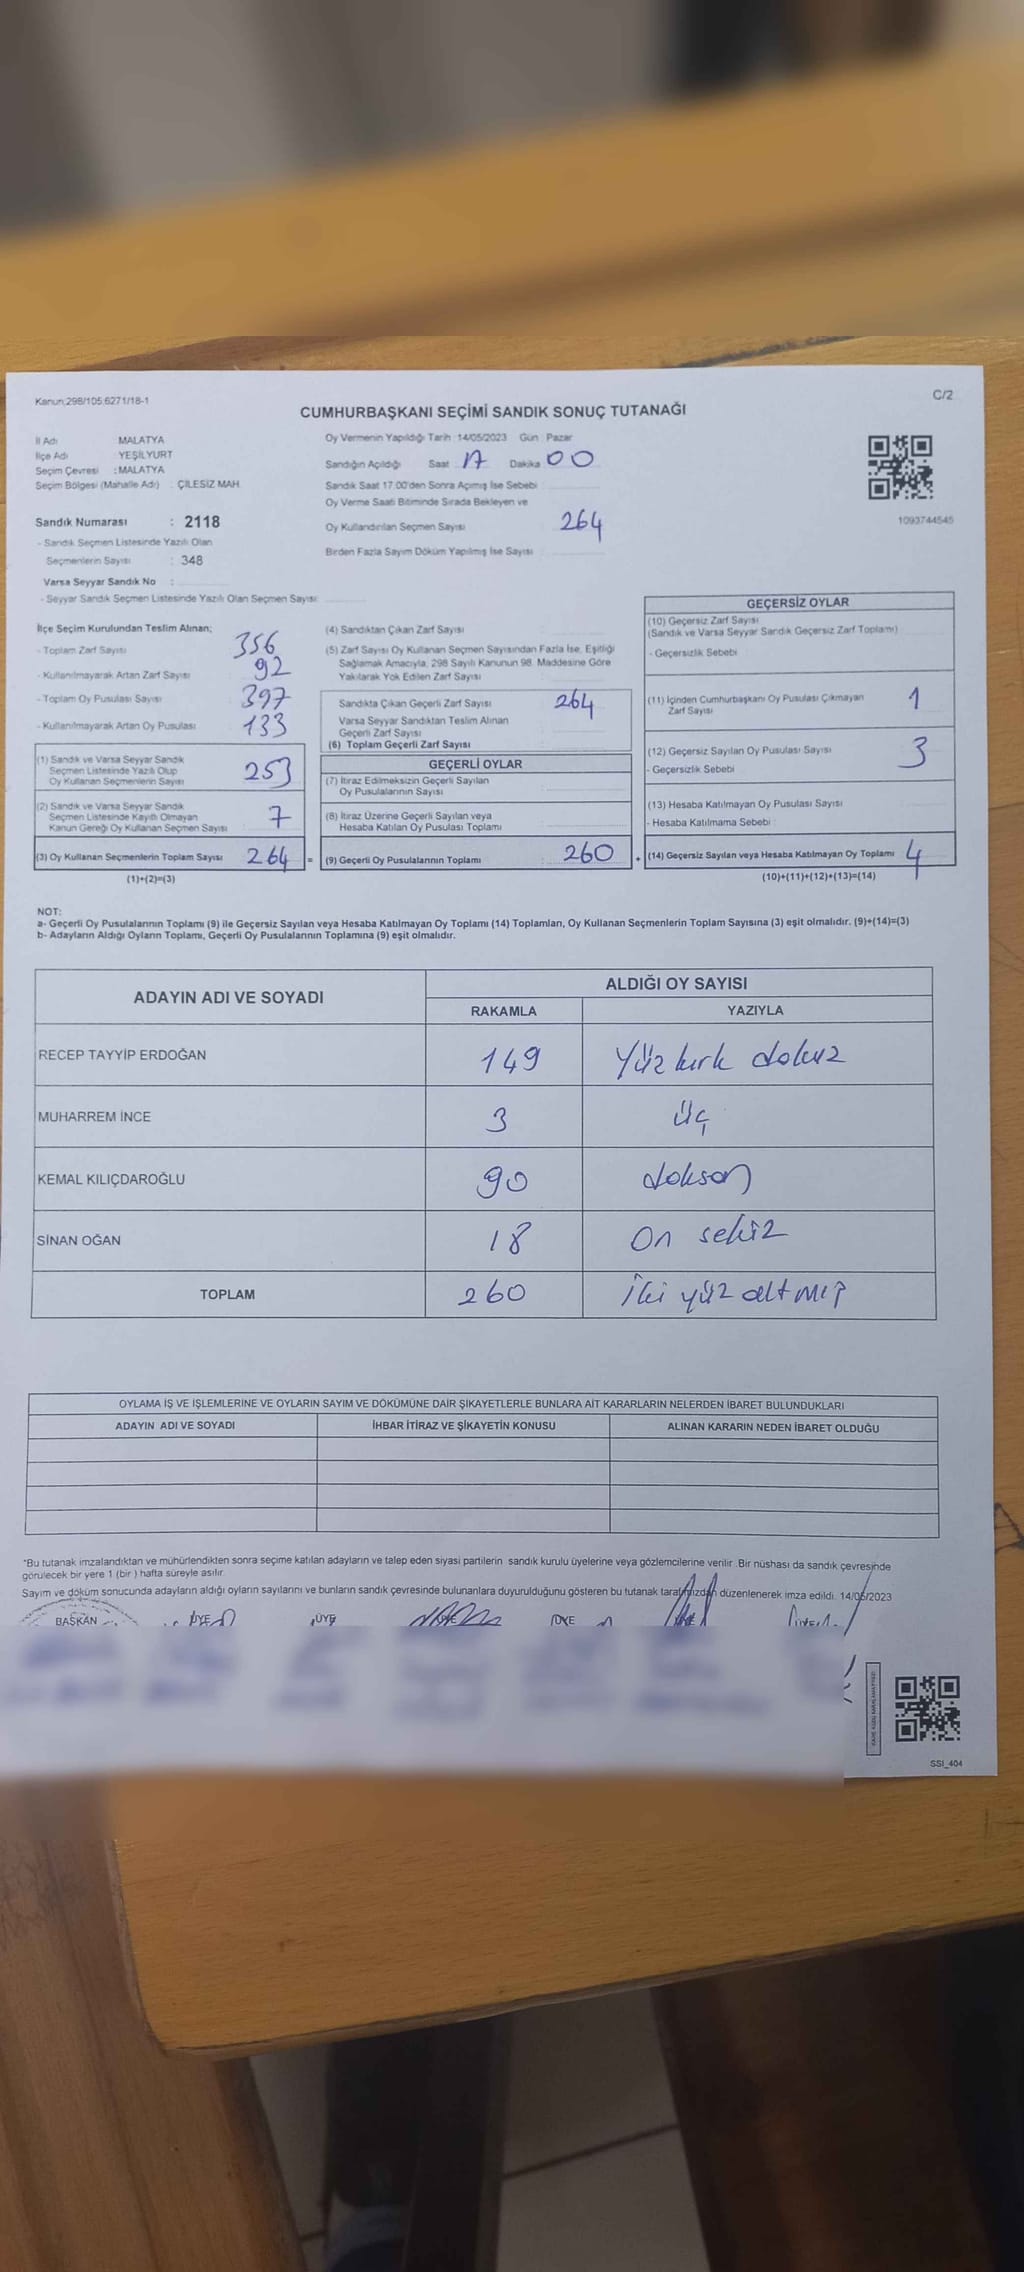 Kanun;298/105,6271/18-1
C/2
CUMHURBAŞKANI SEÇİMİ SANDIK SONUÇ TUTANAĞI
İl Adı MALATYA
İlçe Adı : YEŞİLYURT
Seçim Çevresi : MALATYA
Seçim Bölgesi (Mahalle Adı) : ÇİLESİZ MAH.
Oy Vermenin Yapıldığı Tarih 14/05/2023 Gün : Pazar
Sandığın Açıldığı Saat 17 Dakika 00
Sandık Saat 17.00'den Sonra Açımış İse Sebebi
Oy Verme Saati Bitiminde Sırada Bekleyen ve
Oy Kullandırılan Seçmen Sayısı 264
Birden Fazla Sayım Döküm Yapılmış İse Sayısı
1093744545
Sandık Numarası : 2118
- Sandık Seçmen Listesinde Yazılı Olan
Seçmenlerin Sayısı : 348
Varsa Seyyar Sandık No :
- Seyyar Sandık Seçmen Listesinde Yazılı Olan Seçmen Sayısı:
İlçe Seçim Kurulundan Teslim Alınan;
- Toplam Zarf Sayısı 356
- Kullanılmayarak Artan Zarf Sayısı 92
- Toplam Oy Pusulası Sayısı 397
- Kullanılmayarak Artan Oy Pusulası 133
(1) Sandık ve Varsa Seyyar Sandık
Seçmen Listesinde Yazılı Olup
Oy Kullanan Seçmenlerin Sayısı 253
(2) Sandık ve Varsa Seyyar Sandık
Seçmen Listesinde Kayıtlı Olmayan
Kanun Gereği Oy Kullanan Seçmen Sayısı 7
(3) Oy Kullanan Seçmenlerin Toplam Sayısı 264 =
(1)+(2)=(3)
(4) Sandıktan Çıkan Zarf Sayısı
(5) Zarf Sayısı Oy Kullanan Seçmen Sayısından Fazla İse, Eşitliği
Sağlamak Amacıyla, 298 Sayılı Kanunun 98. Maddesine Göre
Yakılarak Yok Edilen Zarf Sayısı
Sandıkta Çıkan Geçerli Zarf Sayısı 264
Varsa Seyyar Sandıktan Teslim Alınan
Geçerli Zarf Sayısı
(6) Toplam Geçerli Zarf Sayısı
GEÇERLİ OYLAR
(7) İtiraz Edilmeksizin Geçerli Sayılan
Oy Pusulalarının Sayısı
(8) İtiraz Üzerine Geçerli Sayılan veya
Hesaba Katılan Oy Pusulası Toplamı
(9) Geçerli Oy Pusulalarının Toplamı : 260 +
GEÇERSİZ OYLAR
(10) Geçersiz Zarf Sayısı
(Sandık ve Varsa Seyyar Sandık Geçersiz Zarf Toplamı)
- Geçersizlik Sebebi
(11) İçinden Cumhurbaşkanı Oy Pusulası Çıkmayan
Zarf Sayısı 1
(12) Geçersiz Sayılan Oy Pusulası Sayısı 3
- Geçersizlik Sebebi
(13) Hesaba Katılmayan Oy Pusulası Sayısı
- Hesaba Katılmama Sebebi
(14) Geçersiz Sayılan veya Hesaba Katılmayan Oy Toplamı 4
(10)+(11)+(12)+(13)=(14)
NOT:
a- Geçerli Oy Pusulalarının Toplamı (9) ile Geçersiz Sayılan veya Hesaba Katılmayan Oy Toplamı (14) Toplamları, Oy Kullanan Seçmenlerin Toplam Sayısına (3) eşit olmalıdır. (9)+(14)=(3)
b- Adayların Aldığı Oyların Toplamı, Geçerli Oy Pusulalarının Toplamına (9) eşit olmalıdır.
ADAYIN ADI VE SOYADI
ALDIĞI OY SAYISI
RAKAMLA YAZIYLA
RECEP TAYYİP ERDOĞAN 149 Yüz kırk dokuz
MUHARREM İNCE 3 üç
KEMAL KILIÇDAROĞLU 90 doksan
SİNAN OĞAN 18 On sekiz
TOPLAM 260 İki yüz altmış
OYLAMA İŞ VE İŞLEMLERİNE VE OYLARIN SAYIM VE DÖKÜMÜNE DAİR ŞİKAYETLERLE BUNLARA AİT KARARLARIN NELERDEN İBARET BULUNDUKLARI
ADAYIN ADI VE SOYADI İHBAR İTİRAZ VE ŞİKAYETİN KONUSU ALINAN KARARIN NEDEN İBARET OLDUĞU
*Bu tutanak imzalandıktan ve mühürlendikten sonra seçime katılan adayların ve talep eden siyasi partilerin sandık kurulu üyelerine veya gözlemcilerine verilir. Bir nüshası da sandık çevresinde
görülecek bir yere 1 (bir ) hafta süreyle asılır.
Sayım ve döküm sonucunda adayların aldığı oyların sayılarını ve bunların sandık çevresinde bulunanlara duyurulduğunu gösteren bu tutanak tarafımızdan düzenlenerek imza edildi. 14/05/2023
BAŞKAN ÜYE ÜYE ÜYE ÜYE
SSI_404